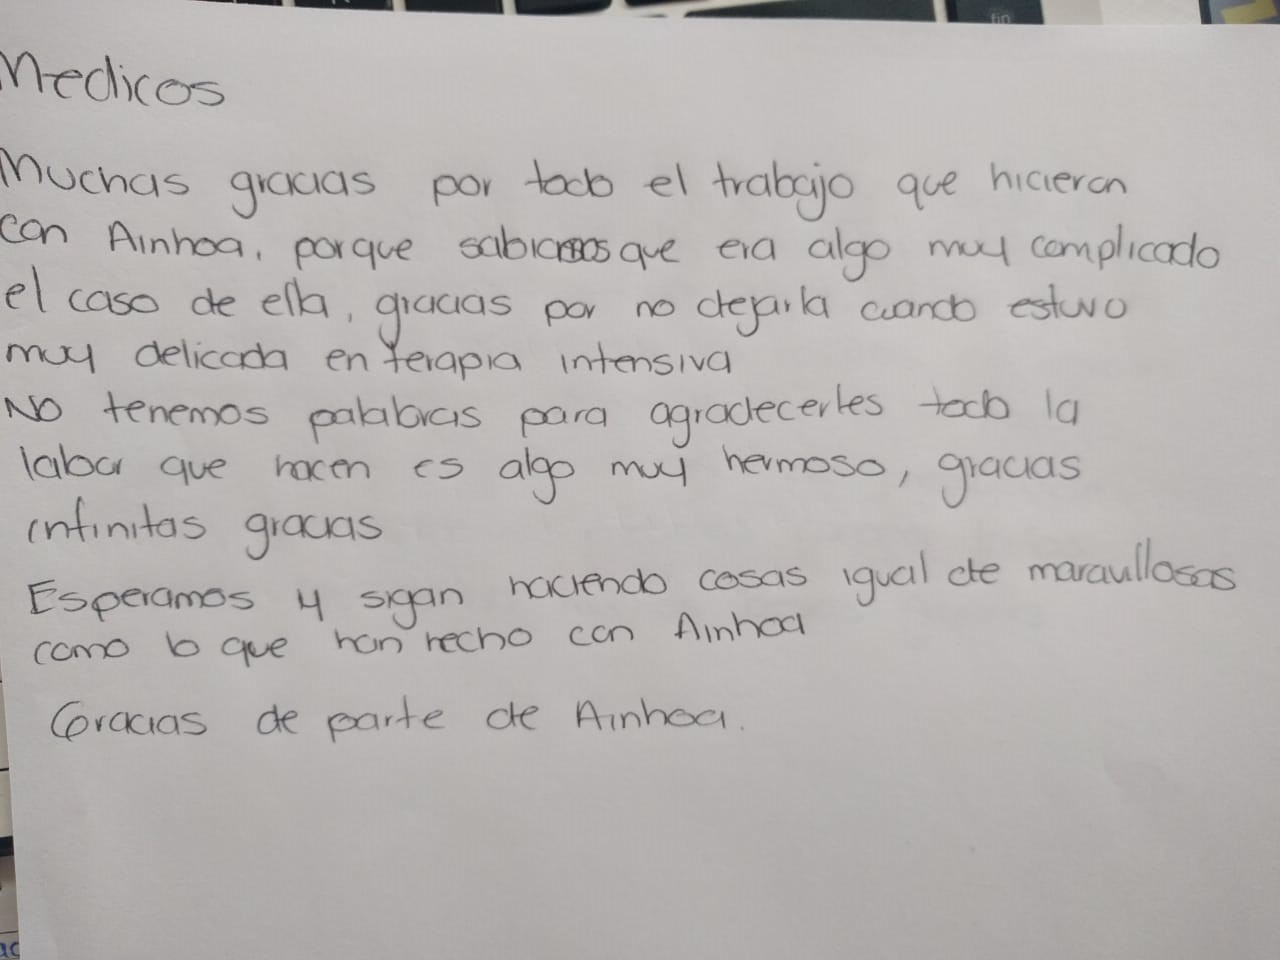 Medicos
Muchas gracias por todo el trabajo que hicieron
con Ainhoa, porque sabiamos que era algo muy complicado
el caso de ella, gracias por no dejarla cuando estuvo
muy delicada en terapia intensiva
No tenemos palabras para agradecerles todo la
labor que hacen es algo muy hermoso, gracias
infinitas gracias
Esperamos y sigan haciendo cosas igual de maravillosas
como lo que han hecho con Ainhoa
Gracias de parte de Ainhoa.
fin